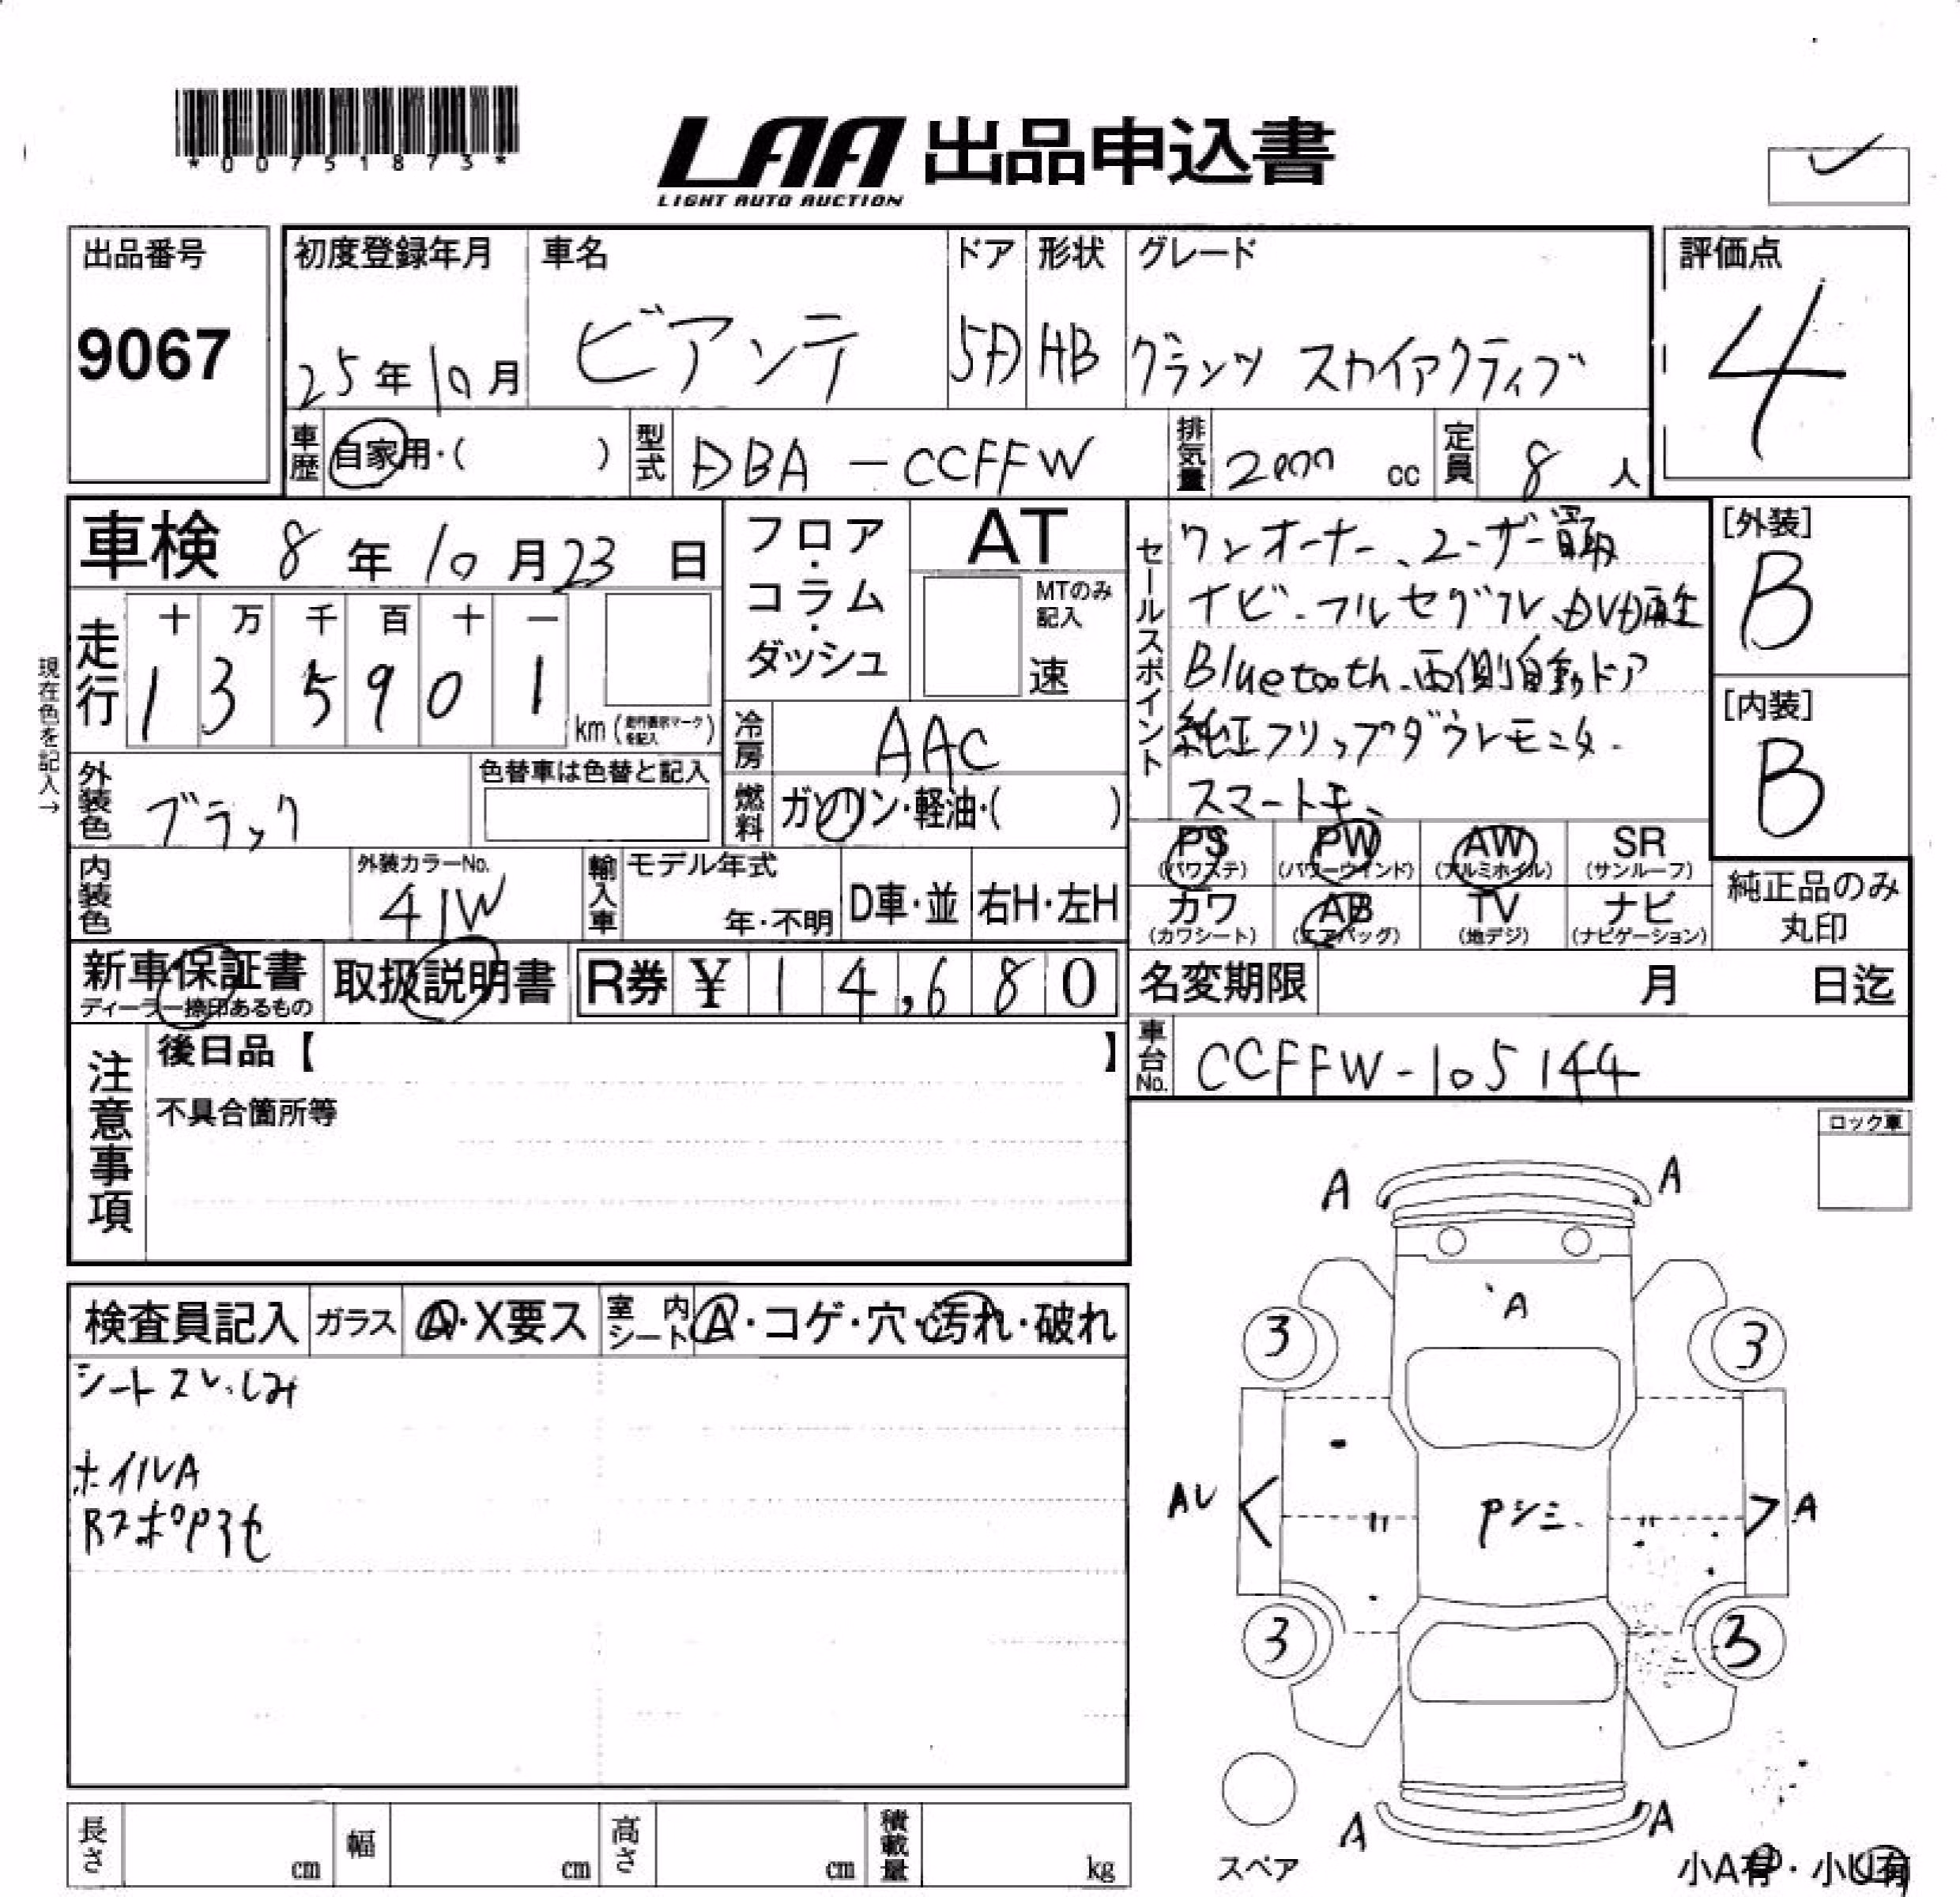 *00751873*
LAA 出品申込書
LIGHT AUTO AUCTION
出品番号
9067
初度登録年月
25年10月
車名
ビアンテ
ドア
5D
形状
HB
グレード
グランツ スカイアクティブ
評価点
4
車歴
自家用・( )
型式
DBA-CCFFW
排気量
2000 cc
定員
8 人
車検 8年10月23日
フロア・コラム・ダッシュ
AT
MTのみ記入
速
セールスポイント
ワンオーナー、ユーザー買取
ナビ・フルセグフレ、DVD再生
Bluetooth、両側自動ドア
純正フリップダウンモニタ、
スマートキー、
[外装]
B
[内装]
B
現在色を記入→
走行
十 万 千 百 十 一
1 3 5 9 0 1
km (走行表示マークを記入)
冷房
AAC
外装色
ブラック
色替車は色替と記入
燃料
ガソリン・軽油・( )
PS
(パワステ)
PW
(パワーウインド)
AW
(アルミホイル)
SR
(サンルーフ)
カワ
(カワシート)
AB
(エアバッグ)
TV
(地デジ)
ナビ
(ナビゲーション)
純正品のみ
丸印
内装色
外装カラーNo.
41W
輸入車
モデル年式
年・不明
D車・並
右H・左H
新車保証書
ディーラー捺印あるもの
取扱説明書
R券 ¥ 14,680
名変期限 月 日迄
車台No.
CCFFW-105144
注意事項
後日品【 】
不具合箇所等
ロック車
検査員記入
ガラス
A・X要ス
室内シート
A・コゲ・穴・汚れ・破れ
シートスレ、しみ
ホイルA
A A
A
3 3
AU A
Pシミ
3 3
A A
スペア
小A有・小U有
長さ cm
幅 cm
高さ cm
積載量 kg